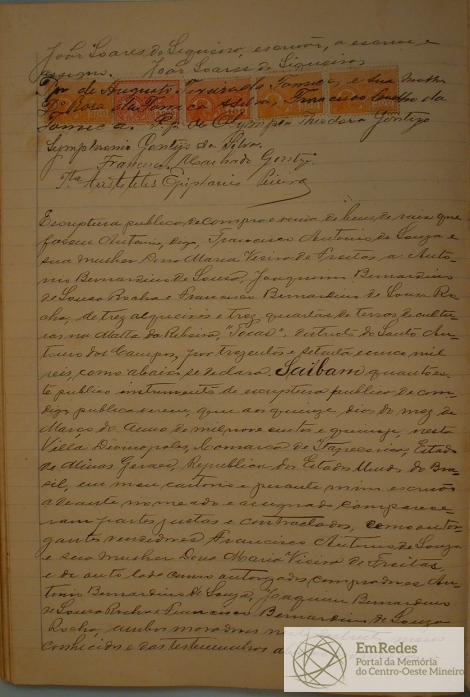 João Soares de Siqueira, escrivão, a escrevi e
assigno. João Soares de Siqueira
P.p. de Augusto Teixeira da Fonseca, e sua mulher
D. Rosa da Fonseca e Silva, Francisco Coelho da
Fonseca. P.p. de Olympia Theodora Gontijo
Symphronio Gontijo da Silva.
Francisco Machado Gontijo
Aristoteles Epiphanio Pereira
Escriptura publica de compra e venda de bens de raiz que
fazem Antonio, digo, Francisco Antonio de Souza e
sua mulher Dona Maria Vieira de Freitas, a Anto-
nio Bernardino de Souza, Joaquim Bernardino
de Souza Rocha e Francisco Bernardino de Souza Ro-
cha, de trez alqueires e trez quartas de terras de cultu-
ras na Matta do Ribeirão, districto de Santo An-
tonio dos Campos, por trezentos e setenta e cinco mil
reis, como abaixo se declara. Saibam quantos es-
te publico instrumento de escriptura publica de com-
digo publica virem, que aos quinze dias do mez de
Março do anno de mil nove centos e quinze, nesta
Villa Divinopolis, Comarca de Itapecerica, Estado
de Minas Geraes, Republica dos Estados Unidos do Bra-
sil, em meu cartorio e perante mim escrivão
adeante nomeado e assignado compareceram
partes justas e contractadas, como outor-
gantes vendedores Francisco Antonio de Souza
e sua mulher Dona Maria Vieira de Freitas,
e de outro lado como outorgados compradores An-
tonio Bernardino de Souza, Joaquim Bernardino
de Souza Rocha e Francisco Bernardino de Souza
Rocha, ambos moradores neste districto, meus
conhecidos e das testemunhas
EmRedes
Portal da Memória
do Centro-Oeste Mineiro